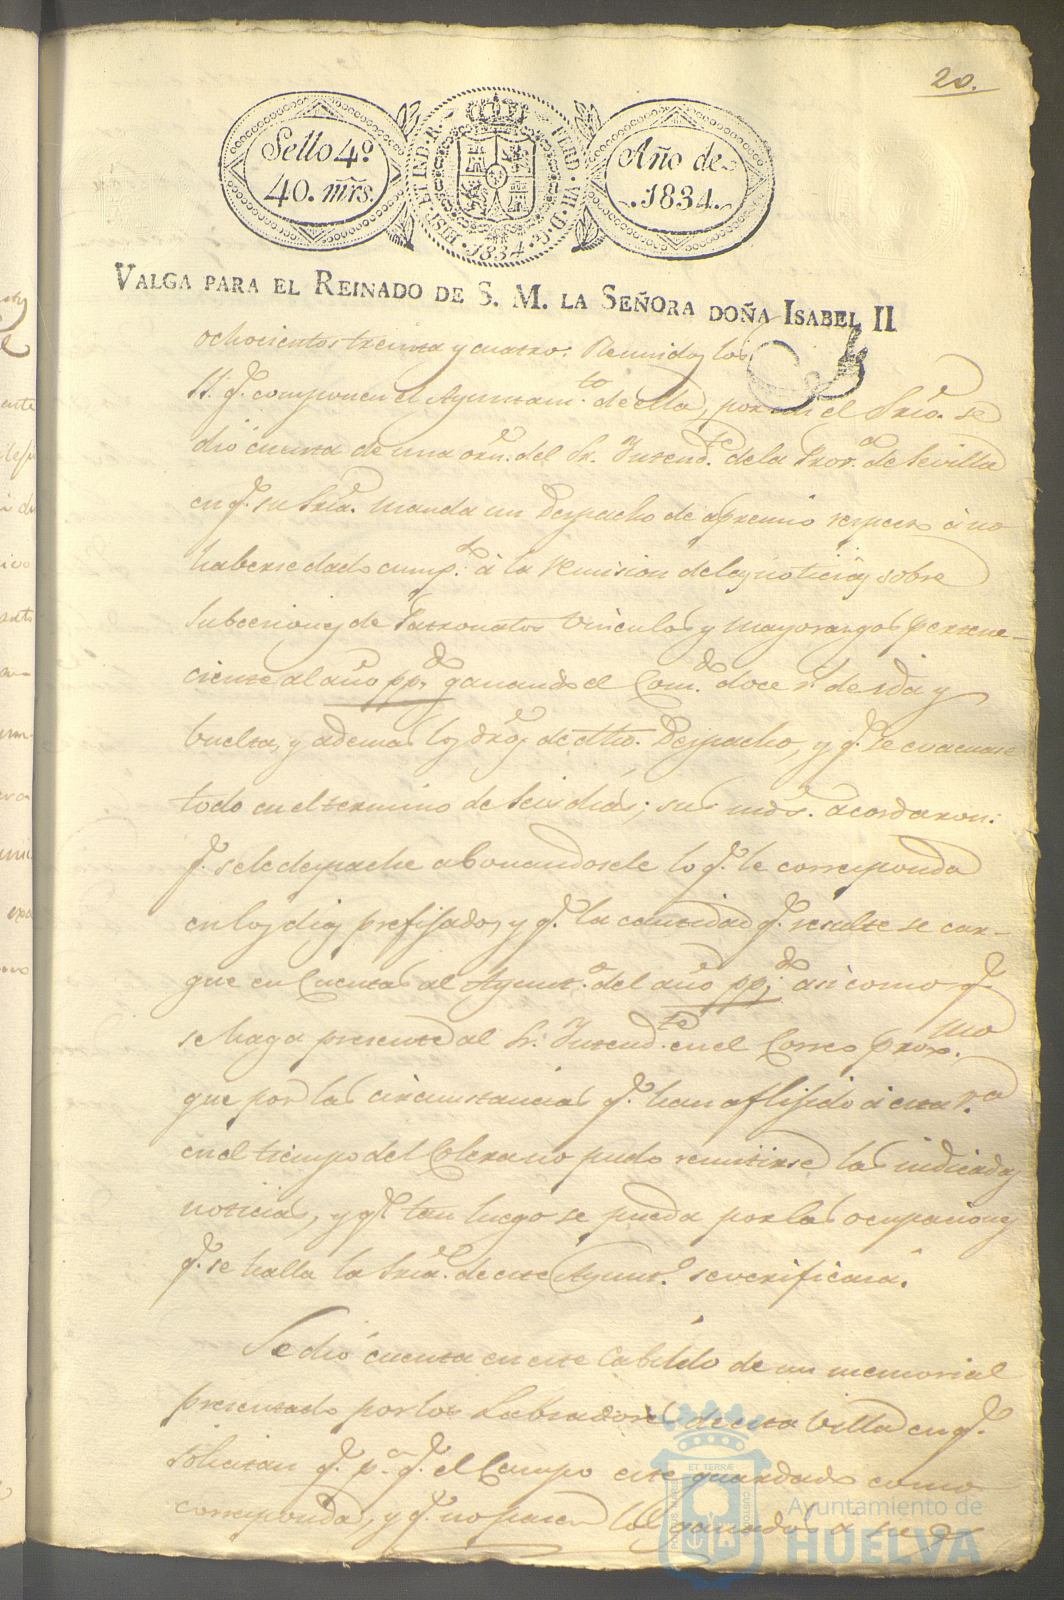 20.
Sello 4º
40. mrs.
HISP. ET IND. R.
FERD. VII. D. G.
1834.
Año de
1834.
VALGA PARA EL REINADO DE S. M. LA SEÑORA DOÑA ISABEL II
ochocientos treinta y cuatro: Reunidos los
SS. q.e componen el Ayuntam.to de ella, por mi el Srio. se
dió cuenta de una orn. del Sr. Intend.te de la Prov.a de Sevilla
en q.e su Sria. manda un Despacho de apremio respecto á no
haberse dado cump.to á la remision de las noticias sobre
subcesiones de Patronatos vinculos y mayorazgos pertene-
ciente al año pp.do ganando el Com.do doce rs. de ida y
buelta, y ademas los dros. de dho. Despacho, y q.e se evacuase
todo en el termino de seis dias; sus mds. acordaron:
q.e se le despache abonandosele lo q.e le corresponda
en los dias prefijados, y q.e la cantidad q.e resulte se car-
gue en Cuentas al Ayunt.o del año pp.do asi como q.e
se haga presente al Sr. Intend.te en el Correo prox.mo
que por las circunstancias q.e han aflijido á esta v.a
en el tiempo del Colera no pudo remitirse las indicadas
noticias, y q.e tan luego se pueda por las ocupaciones
q.e se halla la Sria. de este Ayunt.o se verificará.
Se dió cuenta en este Cabildo de un memorial
presentado por los Labradores de esta Villa en q.e
solicitan q.e p.a q.e el Campo esté guardado como
corresponda, y q.e no pasen los ganados a
PORTUS MARIS ET TERRÆ CUSTODIA
Ayuntamiento de
HUELVA